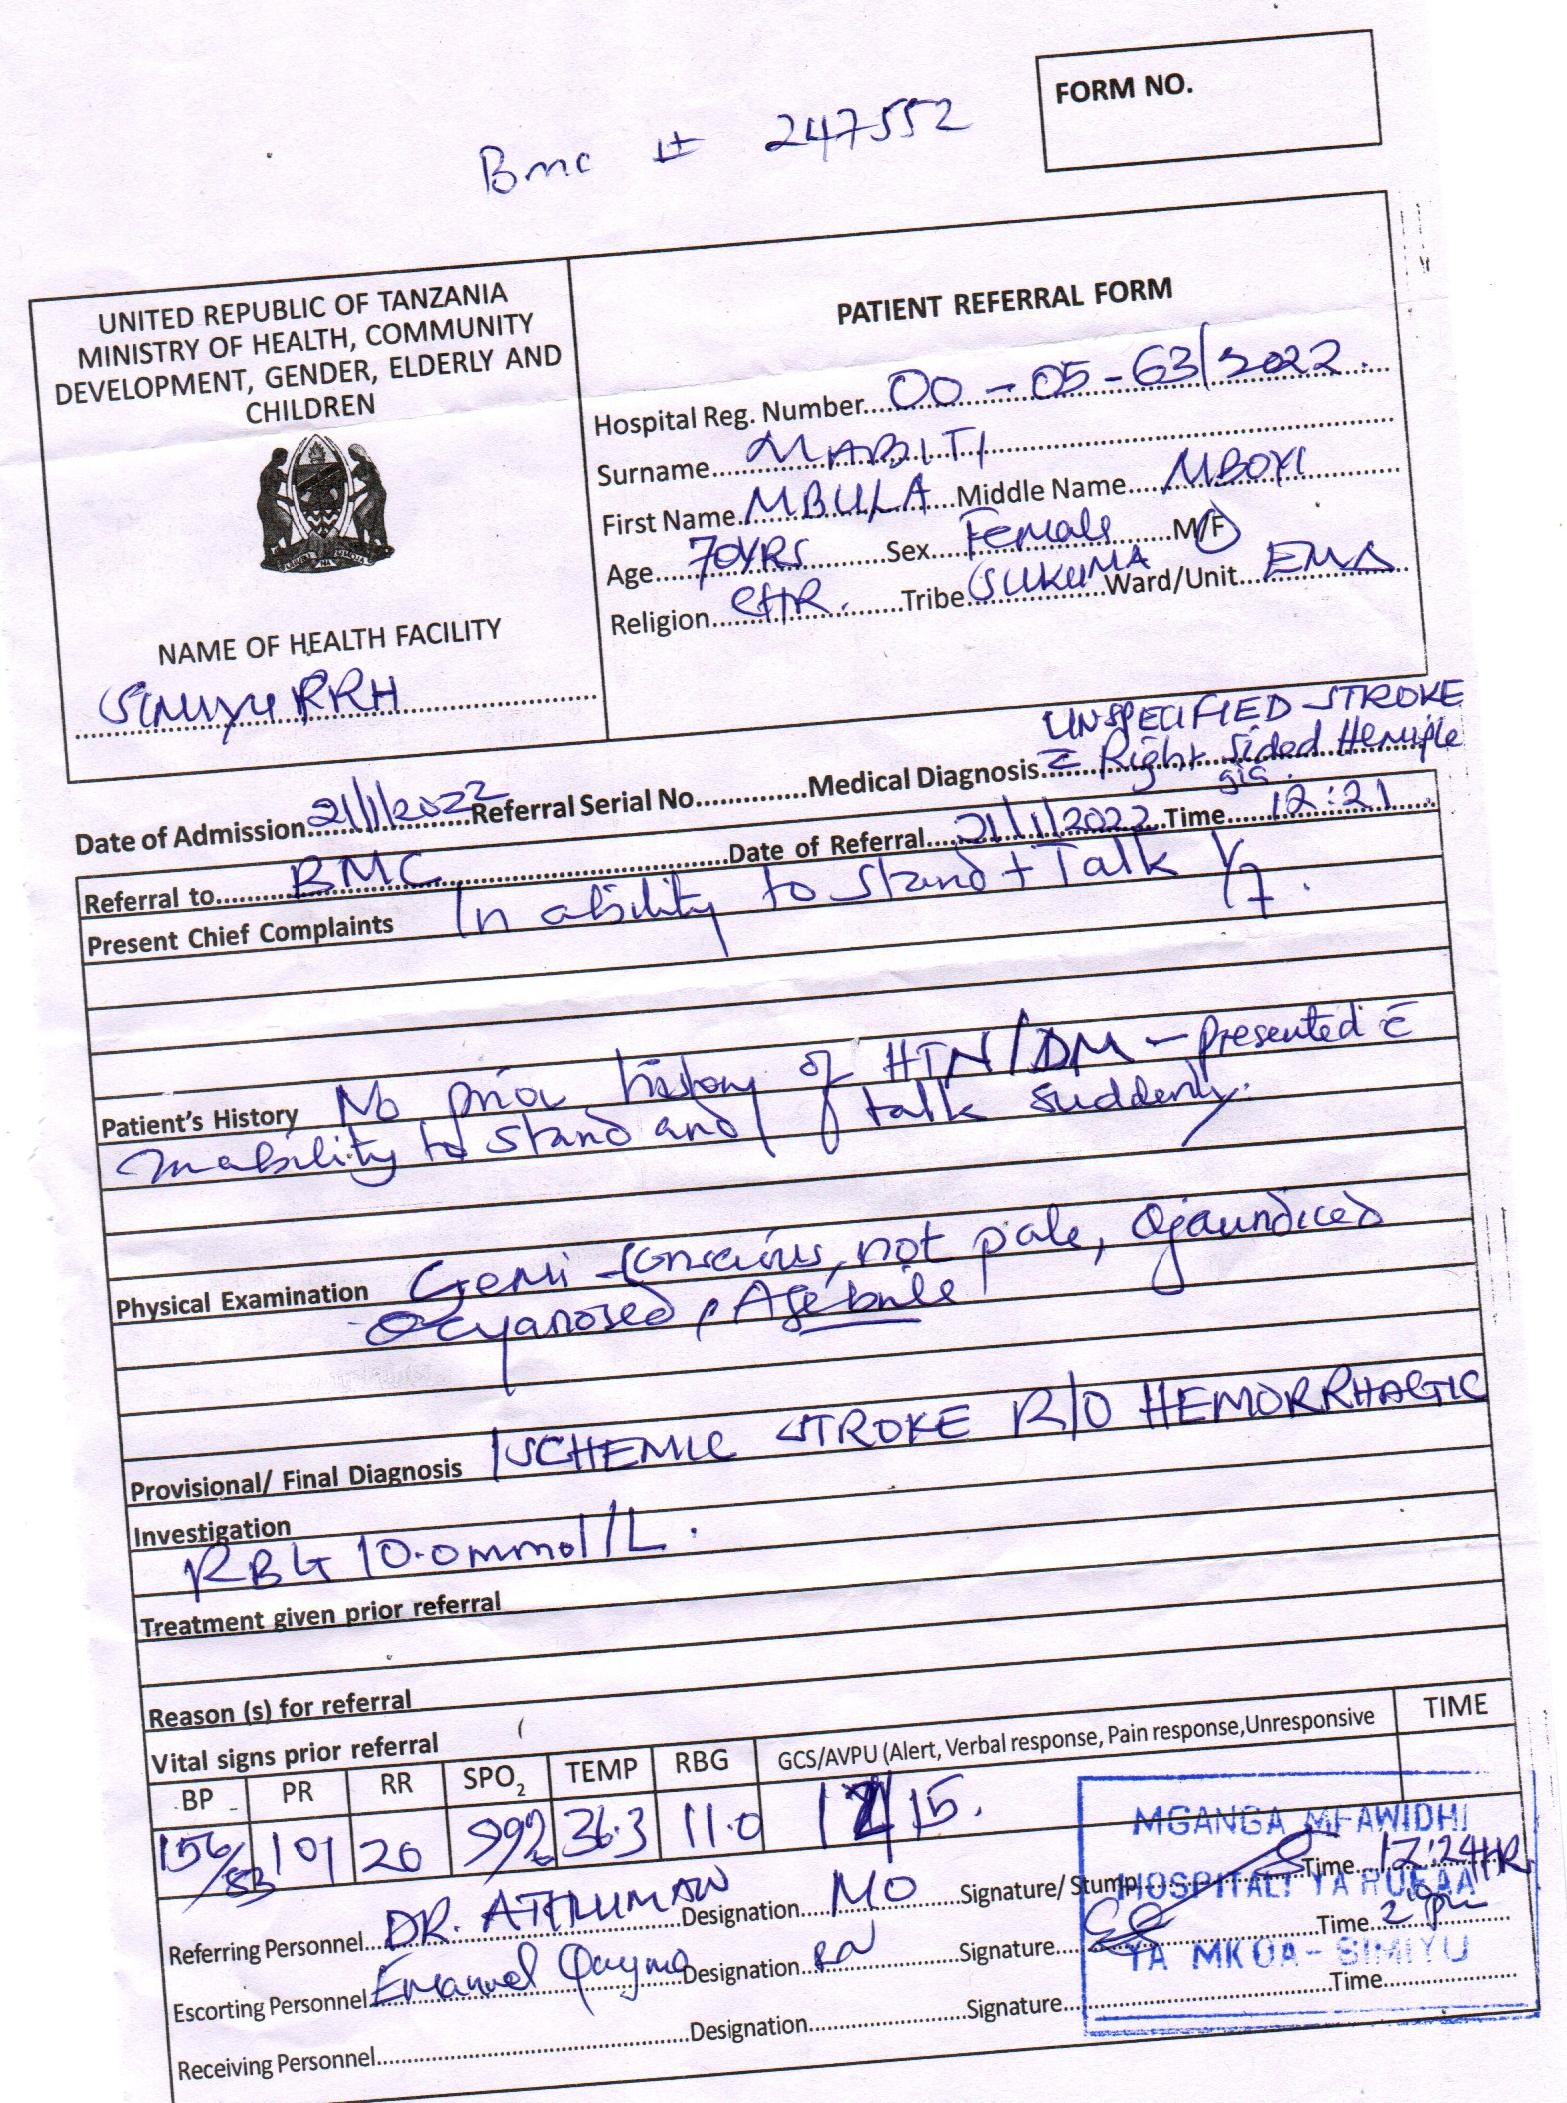 FORM NO.
Bmc # 247552
UNITED REPUBLIC OF TANZANIA
MINISTRY OF HEALTH, COMMUNITY
DEVELOPMENT, GENDER, ELDERLY AND
CHILDREN
NAME OF HEALTH FACILITY
SIMIYU RRH
PATIENT REFERRAL FORM
Hospital Reg. Number 00-05-63/2022.
Surname MABITI
First Name MBULA Middle Name MBOYI
Age 70YRS Sex Female M/F
Religion CHR. Tribe SUKUMA Ward/Unit EMD
UNSPECIFIED STROKE
Date of Admission 21/1/2022 Referral Serial No. Medical Diagnosis c̄ Right Sided Hemiple
gia.
Referral to BMC Date of Referral 21/1/2022 Time 12:21
Present Chief Complaints In ability to stand + Talk 1/7.
Patient's History No prior history of HTN/DM - presented c̄
inability to stand and talk suddenly.
Physical Examination Semi-conscious, not pale, ∅jaundiced
∅cyanosed, Afebrile
Provisional/ Final Diagnosis ISCHEMIC STROKE R/O HEMORRHAGIC
Investigation
RBG 10.0mmol/L.
Treatment given prior referral
Reason (s) for referral
Vital signs prior referral
BP PR RR SPO2 TEMP RBG GCS/AVPU (Alert, Verbal response, Pain response,Unresponsive TIME
156/83 101 20 99% 36.3 11.0 /15.
MGANGA MFAWIDHI
HOSPITALI YA RUFAA
YA MKOA - SIMIYU
Referring Personnel DR. ATHUMAN Designation MO Signature/ Stump Time 12:24HR
Escorting Personnel Emanuel Designation RN Signature Time 2:pm
Receiving Personnel Designation Signature Time